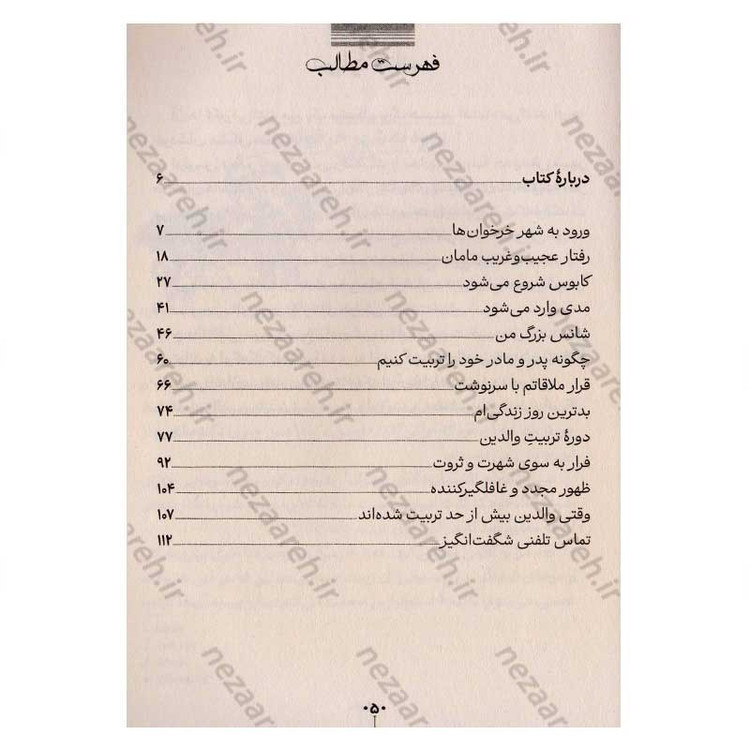 فهرست مطالب
دربارهٔ کتاب ۶
ورود به شهر خرخوان‌ها ۷
رفتار عجیب‌وغریب مامان ۱۸
کابوس شروع می‌شود ۲۷
مدی وارد می‌شود ۴۱
شانس بزرگ من ۴۶
چگونه پدر و مادر خود را تربیت کنیم ۶۰
قرار ملاقاتم با سرنوشت ۶۶
بدترین روز زندگی‌ام ۷۴
دورهٔ تربیتِ والدین ۷۷
فرار به سوی شهرت و ثروت ۹۲
ظهور مجدد و غافلگیرکننده ۱۰۴
وقتی والدین بیش از حد تربیت شده‌اند ۱۰۷
تماس تلفنی شگفت‌انگیز ۱۱۲
۰۵۰
nezaareh.ir